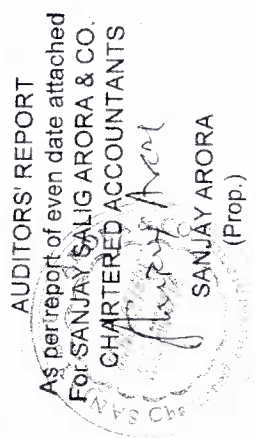 AUDITORS' REPORT
As per report of even date attached
For SANJAY SALIG ARORA & CO.
CHARTERED ACCOUNTANTS
Sanjay Arora
SANJAY ARORA
(Prop.)